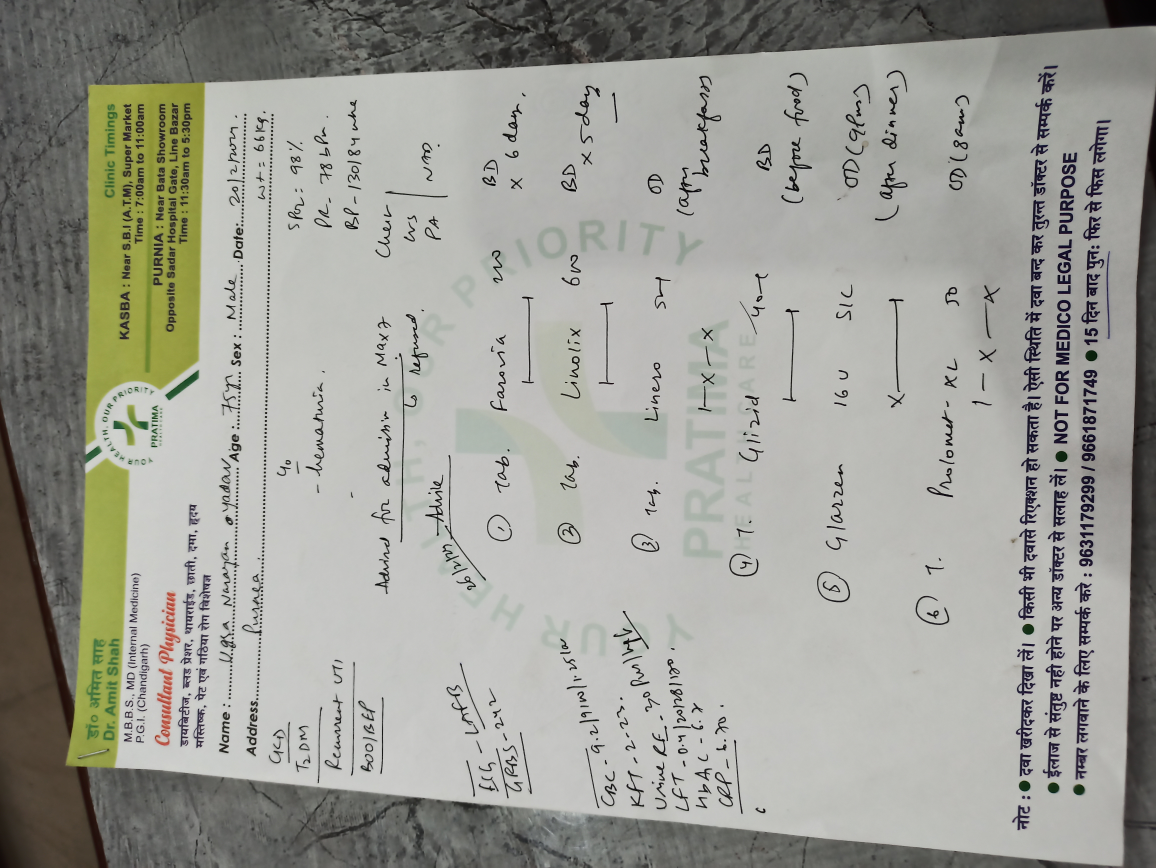 डॉ० अमित साह
Dr. Amit Shah
M.B.B.S., MD (Internal Medicine)
P.G.I. (Chandigarh)
Consultant Physician
डायबिटीज, ब्लड प्रेशर, थायराईड, छाती, दमा, हृदय
मस्तिष्क, पेट एवं गठिया रोग विशेषज्ञ
YOUR HEALTH, OUR PRIORITY
PRATIMA
HEALTHCARE
Clinic Timings
KASBA : Near S.B.I (A.T.M), Super Market
Time : 7:00am to 11:00am
PURNIA : Near Bata Showroom
Opposite Sadar Hospital Gate, Line Bazar
Time : 11:30am to 5:30pm
Name : Narayan yadav Age : 75yr Sex : Male Date: 20/2/2025
Address Purnea wt = 66 kg.
CKD
T2DM
Recurrent UTI
BOO/BEP
c/o
- hematuria.
SPO2: 98%
PR - 78 bpm.
BP - 130/84
Chest
CVS
PA NAD.
Advised for admission in Max 7
refused.
Advice
ECG -
GRBS - 242
CBC - 9.2/9100/1.25
KFT - 2.23.
Urine RE -
LFT - 0.4/20/28/120.
HbA1C - 6.7
CRP - 6.70.
① Tab. Farovia 200 BD
x 6 day.
② Tab. Linolix 600 BD
x 5 day
③ Tab. Linaro 5mg OD
1 - x - x (after breakfast)
④ T. Glizid 40mg BD
(before food)
⑤ Glarzen 16U S/C OD (9pm)
x (after dinner)
⑥ T. Prolomet-XL 50 OD (8am)
1 - x - x
YOUR HEALTH, OUR PRIORITY
PRATIMA
HEALTHCARE
नोट : ● दवा खरीदकर दिखा लें। ● किसी भी दवासे रिएक्शन हो सकता है। ऐसी स्थिति में दवा बन्द कर तुरन्त डॉक्टर से सम्पर्क करें।
● ईलाज से संतुष्ट नही होने पर अन्य डॉक्टर से सलाह लें। ● NOT FOR MEDICO LEGAL PURPOSE
● नम्बर लगवाने के लिए सम्पर्क करे : 9631179299 / 9661871749 ● 15 दिन बाद पुनः फिर से फिस लगेगा।